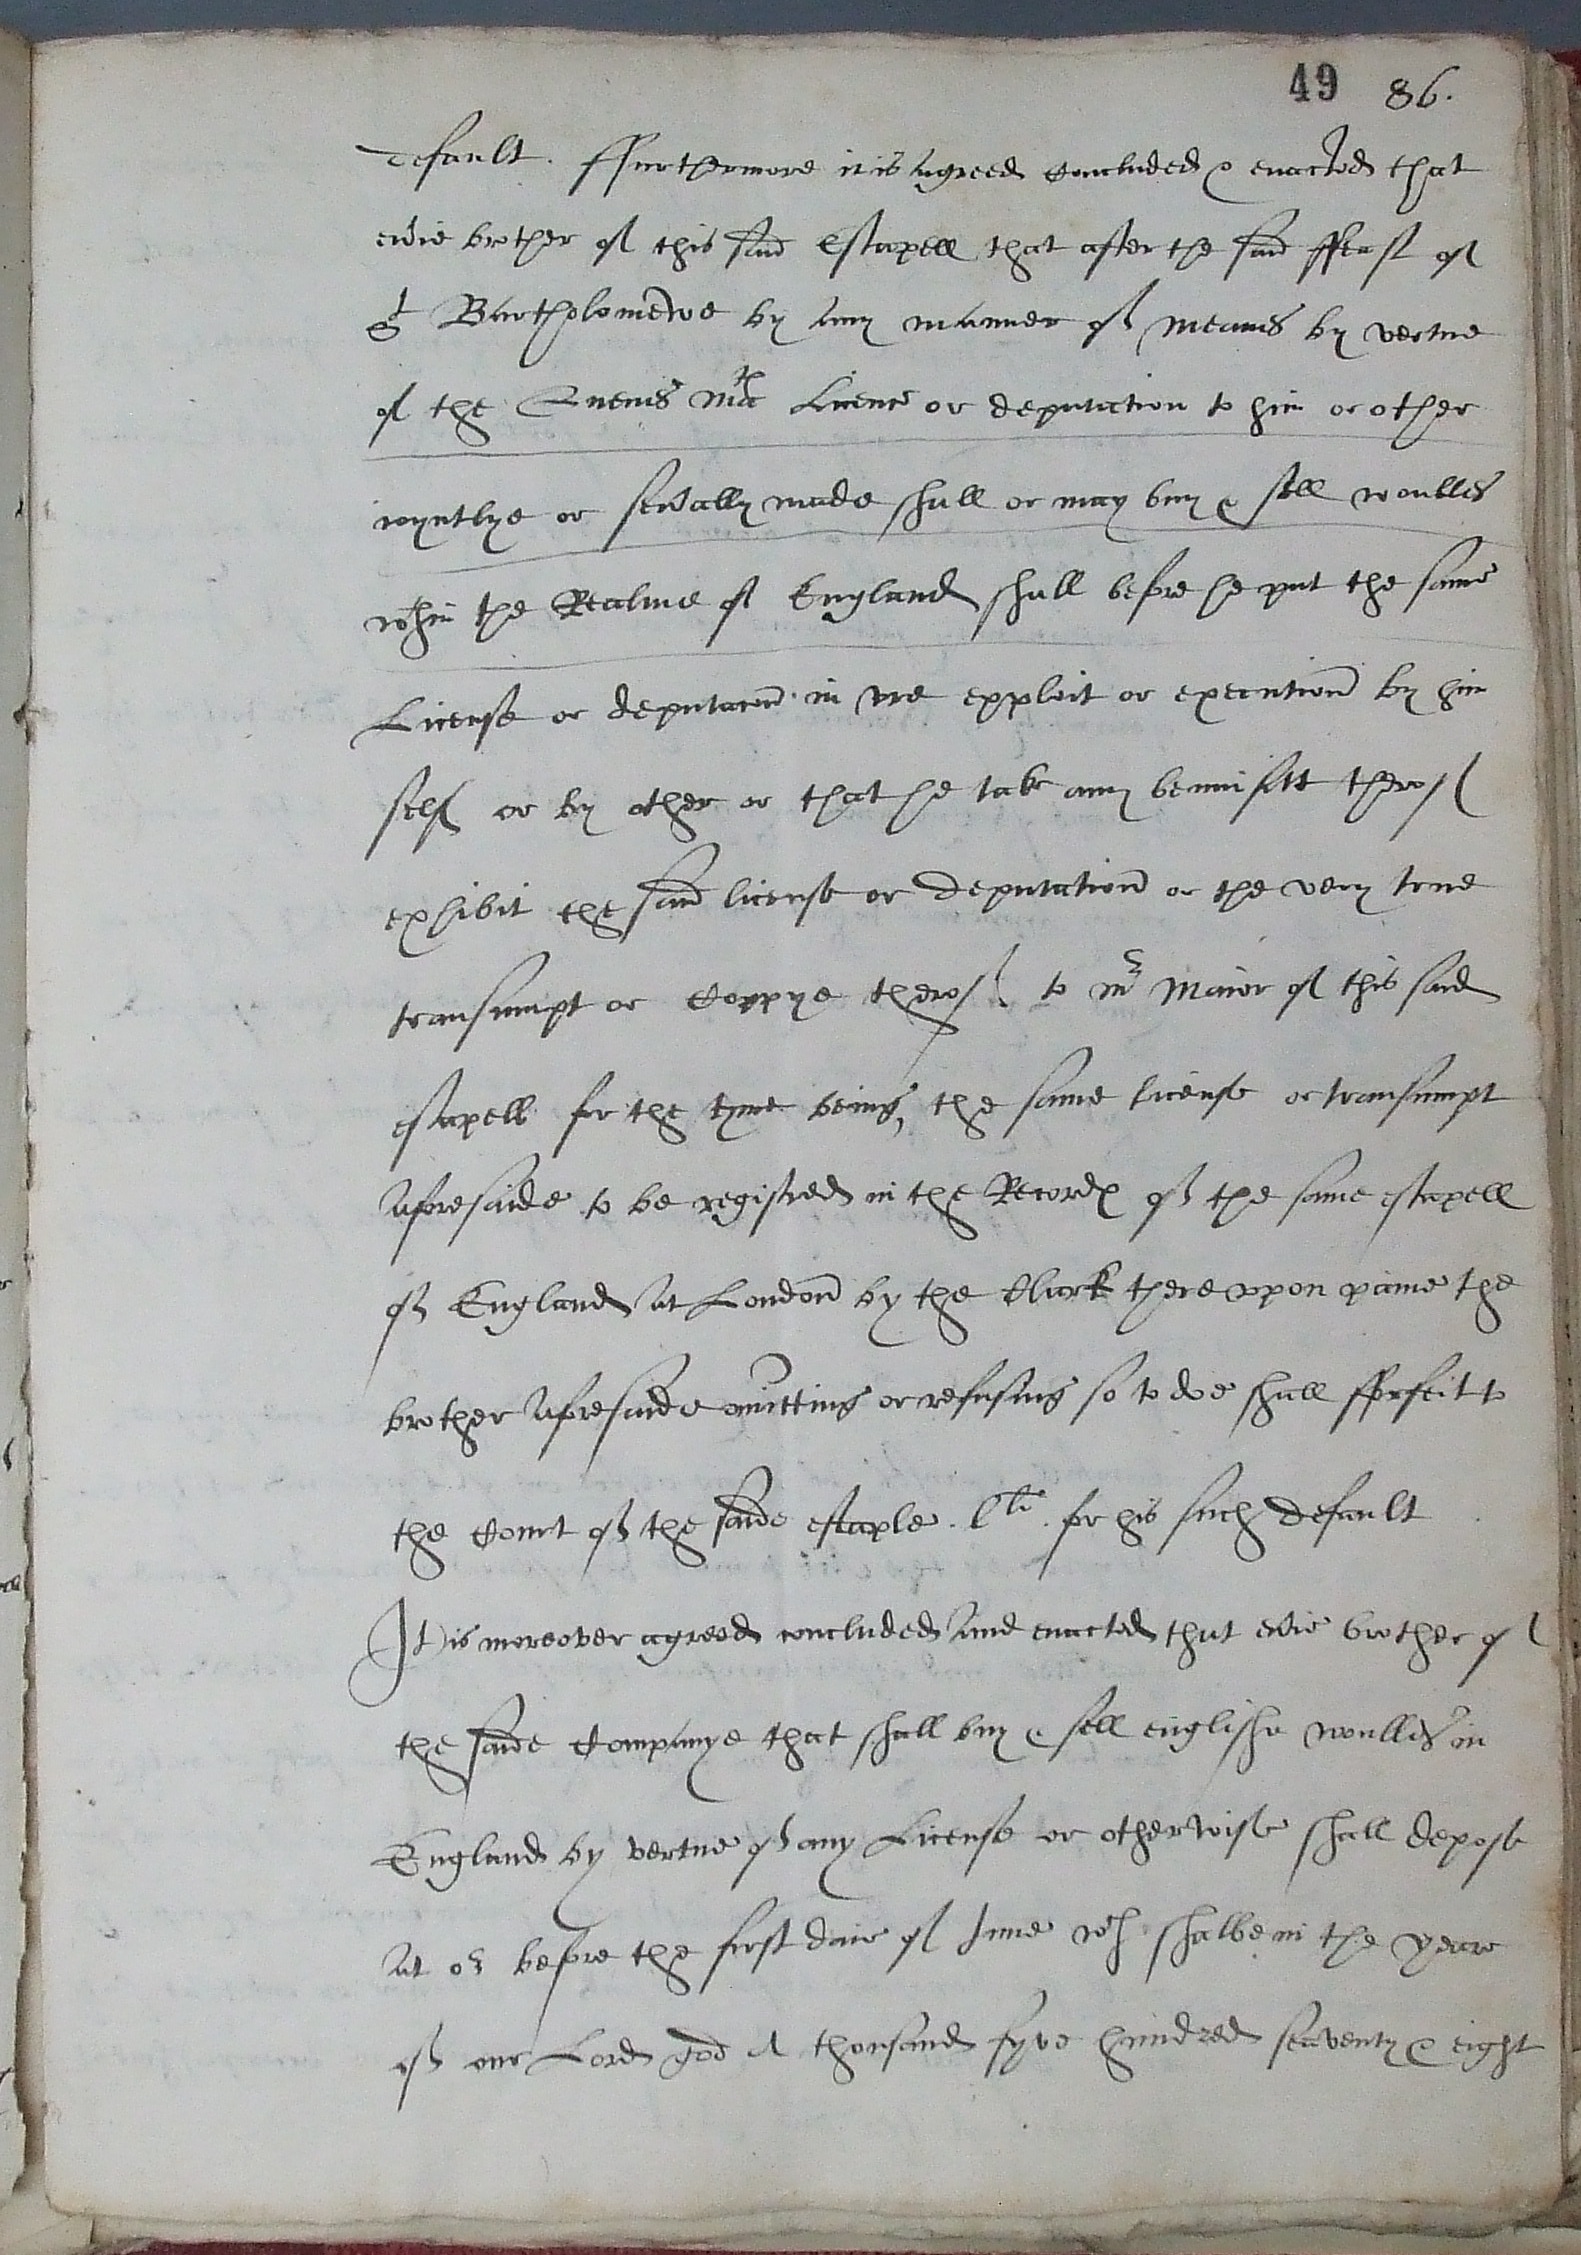 49 86.
default. ffurthermore it is agreed Concluded & enacted that
evie brother of this said Estapell that after the said ffeast of
St Bartholomewe by any manner of meanes by vertue
of the Quenes Mats Licence or deputation to him or other
ioyntlye or sevally made shall or may buy & sell woulles
wthin the Realme of England shall before he put the same
License or deputacon in vre exploit or execution by him
self or by other or that he take any bennifitt therof
exhibit the said license or deputation or the very true
transumpt or Coppye therof to Mr Maior of this said
estapell for the tyme being, the same license or transumpt
aforesaide to be registred in the Records of the same estapell
of England at London by the Clark there vpon paine the
brother aforesaide omitting or refusing so to doe shall fforfeit to
the Court of the saide estaple. lli. for his such default
It is moreover agreed concluded and enacted that evie brother of
the saide Companye that shall buy & sell englishe woulles in
England by vertue of any License or otherwise shall depose
at or before the first daie of June wch shalbe in the yeare
of our Lord god A thousand fyve hundred seaventy & eight